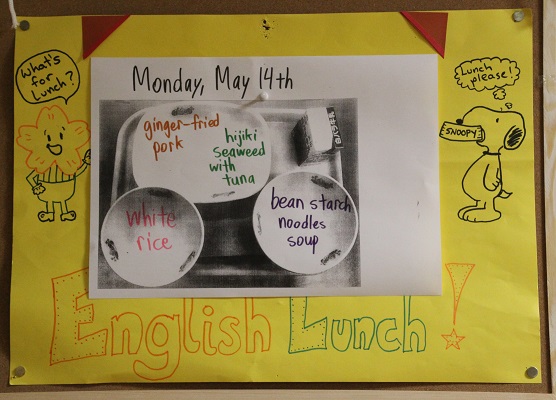 What's
for
Lunch?
Monday, May 14th
Lunch
please!
SNOOPY
ginger-fried
pork
hijiki
seaweed
with
tuna
white
rice
bean starch
noodles
soup
English Lunch!